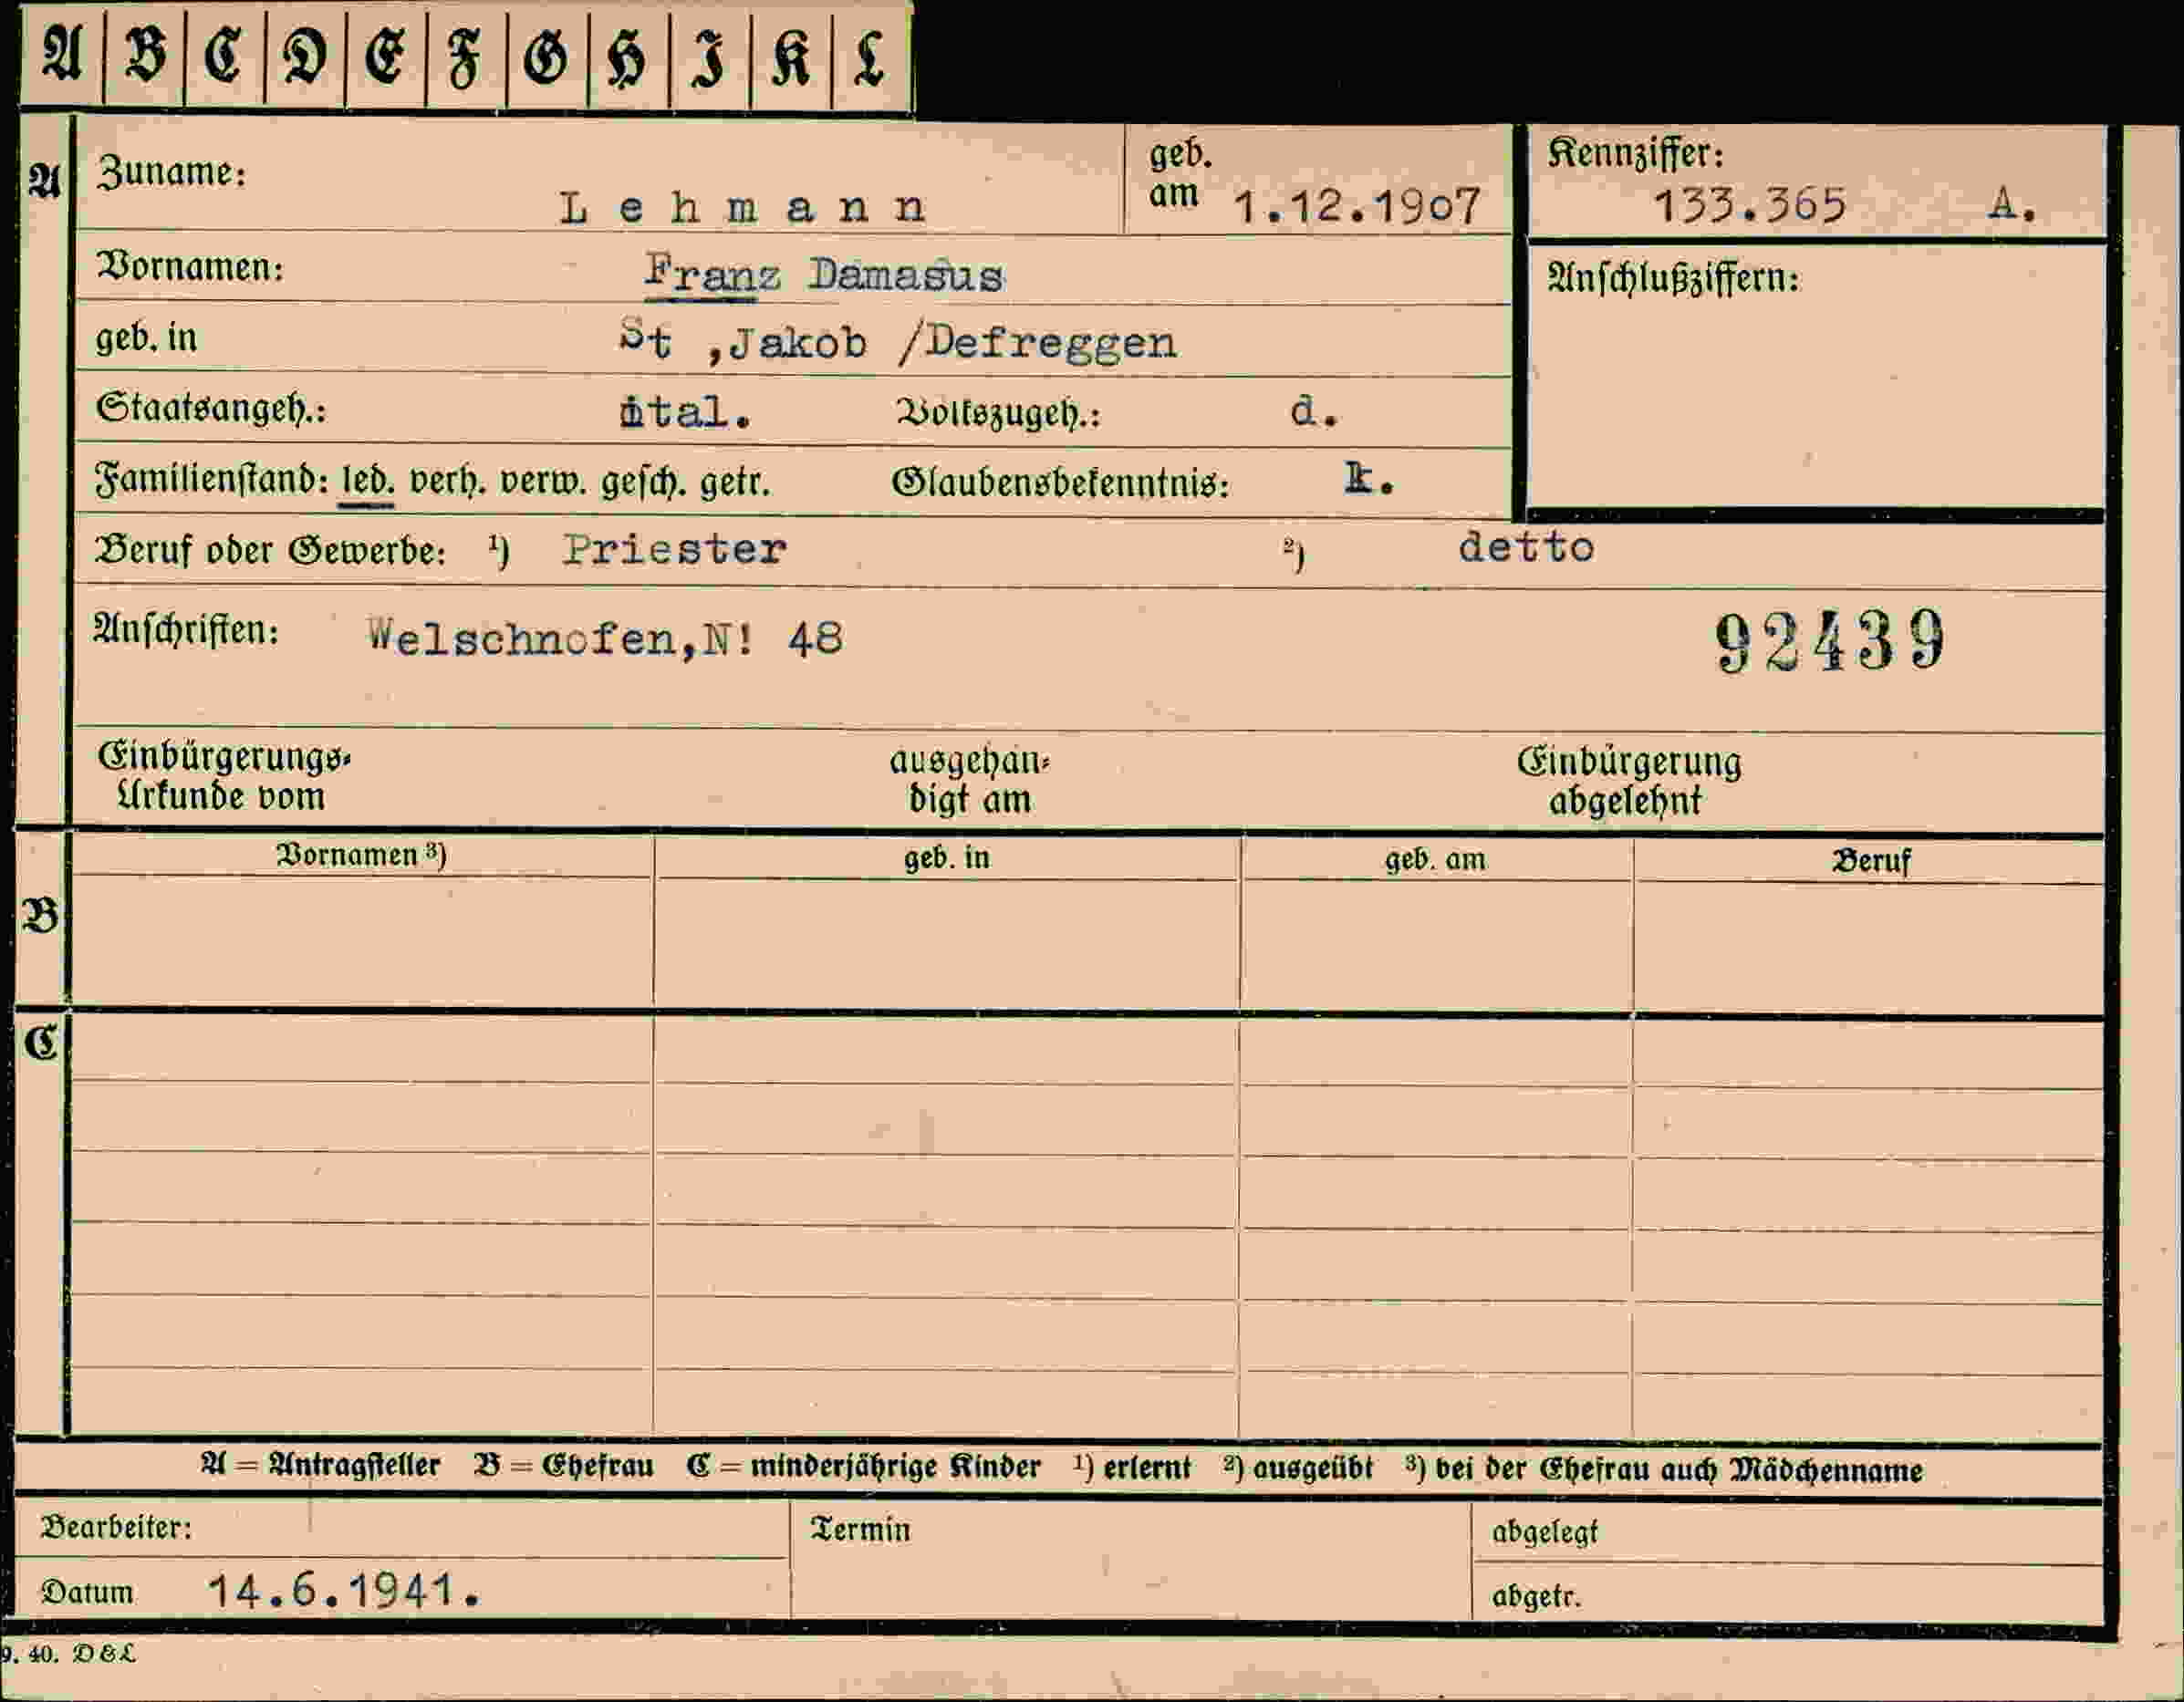 A B C D E F G H I K L
A Zuname: Lehmann geb. am 1.12.1907 Kennziffer: 133.365 A.
Vornamen: Franz Damasus Anschlußziffern:
geb. in St ,Jakob /Defreggen
Staatsangeh.: ital. Volkszugeh.: d.
Familienstand: led. verh. verw. gesch. getr. Glaubensbekenntnis: k.
Beruf oder Gewerbe: ¹) Priester ²) detto
Anschriften: Welschnofen,N! 48 92439
Einbürgerungs- ausgehän- Einbürgerung
Urkunde vom digt am abgelehnt
Vornamen ³) geb. in geb. am Beruf
B
C
A = Antragsteller B = Ehefrau C = minderjährige Kinder ¹) erlernt ²) ausgeübt ³) bei der Ehefrau auch Mädchenname
Bearbeiter: Termin abgelegt
Datum 14.6.1941. abgetr.
9. 40. D & L